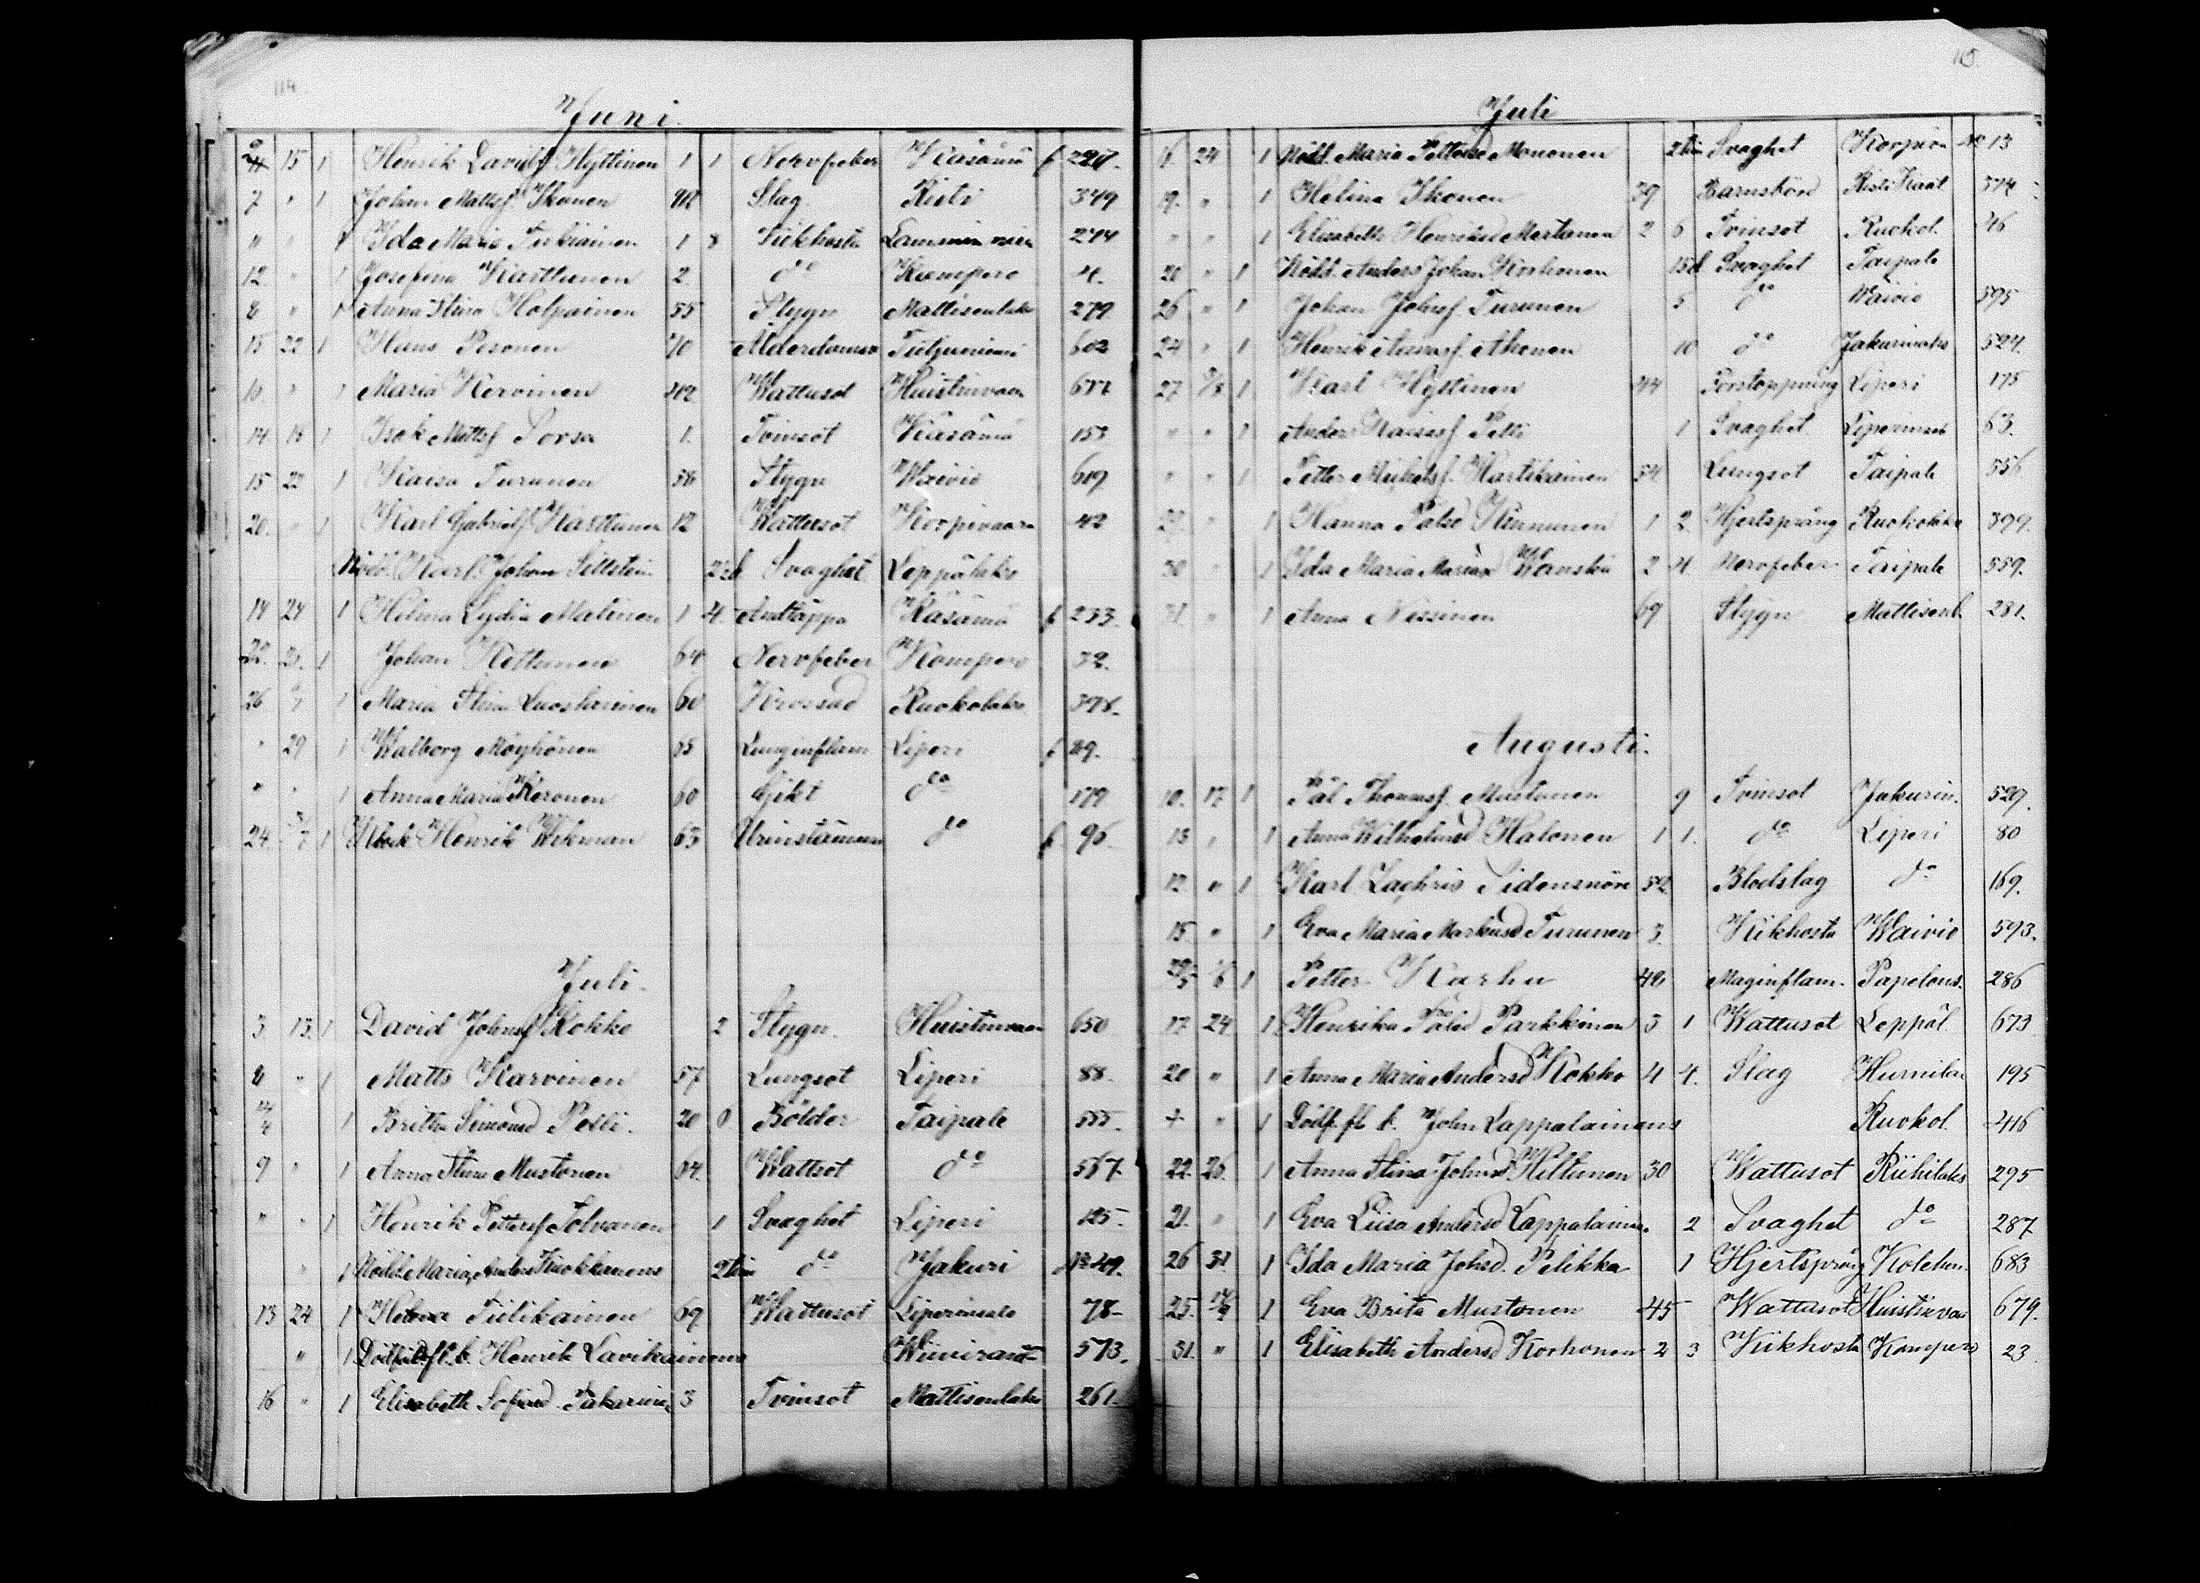 114
Juni.
15 1 Henrik Davidsf Hyttinen 1 1 Nervfeber Käsämä f 227.
7 " 1 Johan Mattsf Ikonen Slag Risti 349
" " 1 Ida Maria Tukiainen 1 8 Kikhosta 274
12 " 1 Josefina Karttunen 2. do Kompero 4.
8 " 1 Anna Stina Holpainen 55 Stygn Mattisenlaks 279
15 22 1 Hans Pesonen 70 Ålderdoms 602
16 " 1 Maria Kervinen Wattusot Huistinvaara
14 14 1 Isak Mattsf Porsa 1. Tvinsot Käsämä 153
15 22 1 Kaisa Turunen 58 Stygn Waivio 619
20. " 1 Karl Gabrielsf Karttunen 12 Wattusot Korpivaara 42
Nödd. Karl Johan Svaghet Leppälaks
14 24 1 Helena Lydia Malinen 1 4 Andtäppa Käsämä f 233.
22. 1 Johan Kettunen 64 Nervfeber Kompero 32.
26 1 Maria Stina Luostarinen 60 Krossad Ruokolaks 378.
" 29 1 Walborg Möyhönen 75 Lunginflam Liperi f 29.
" " 1 Anna Maria Keronen 60 Gikt do 179
24. 1 Henrik Wikman 63 Urinstämma do f 96.
Juli.
3 13. 1 David Johnsf Kokko 2 Stygn. Huistinvaara 650
8 " 1 Matts Karvinen 57 Lungsot Liperi 88.
1 Britha Simonsd Pelli. 20 0 Bölder Taipale 555.
9 " 1 Anna Stina Mustonen 64. Wattsot do 567.
" " 1 Henrik Pettersf Tolvanen 1 Svaghet Liperi 125.
" 1 Nödd. Maria Anders 2 tim do Jakuri No 49.
13 24 1 Helena Tiilikainen 69 Wattusot Liperinsalo 78-
" 1 Dödf. fl. b. Henrik Lavikainens Wiiniranta 573.
16 " 1 Elisabeth Sofiasd Sakarinen 3 Tvinsot Mattisenlaks 261.
115.
Juli
18 24 1 Nödd. Maria Pettersd Mononen 2 tim Svaghet Korpiv. No 13
19. " 1 Helina Ikonen 39 Barnsbörd Risti Kaat 374
" " 1 Elisabeth Henriksd Martanen 2 6 Tvinsot Ruokol. 46
20 " 1 Nödd. Anders Johan Korhonen Svaghet Taipale
26 " 1 Johan Johnsf Turunen 5 do Waivio 595
24 " 1 Henrik Ahonen 10 do Jakurinaho 524.
27. 1 Karl Hyttinen 44 Förstoppning Liperi 175
" " 1 Anders Kaisasf Pelli 1 Svaghet Liperinsalo 63.
" " 1 Petter Mickelsf. Hartikainen 54 Lungsot Taipale 556
27. " 1 Hanna Pålsd Kinnunen 1 2. Hjertsprång Ruokolaks 399.
30 " 1 Ida Maria Mariasd Wanska 2 4 Nervfeber Taipale 559.
31 " 1 Anna Nissinen 69 Stygn Mattisenl. 281.
Augusti.
10. 17. 1 Pål Thomasf. Mustonen 9 Tvinsot Jakurin. 529.
13 " 1 Anna Wilhelmsd Halonen 1 1. do Liperi 80
12 " 1 Karl Zachris Sidensnöre 52 Blodslag do 169.
15 " 1 Eva Maria Markusd Turunen 3. Kikhosta Waivio 593.
1 Petter Karhu 40 Maginflam. Papelons. 286
17. 24 1 Henrika Pålsd Parkkinen 3 1 Wattusot Leppäl. 673
20 " 1 Anna Maria Andersd Kokko 4 4. Slag Humila 195
+ " 1 Dödf. fl. b. John Lappalainens Ruokol. 416
22. 26. 1 Anna Stina Johnsd Kiltunen 30 Wattusot Riihilaks 295
21. " 1 Eva Liisa Andersd Lappalainen. 2 Svaghet do 287
26 31. 1 Ida Maria Johsd. Pelikka 1 Hjertsprång Kokelun. 683
25. 14/9 1 Eva Brita Mustonen 45 Wattusot Huistinvaa 679.
31. " 1 Elisabeth Andersd Korhonen 2 3 Kikhosta Kompero 23